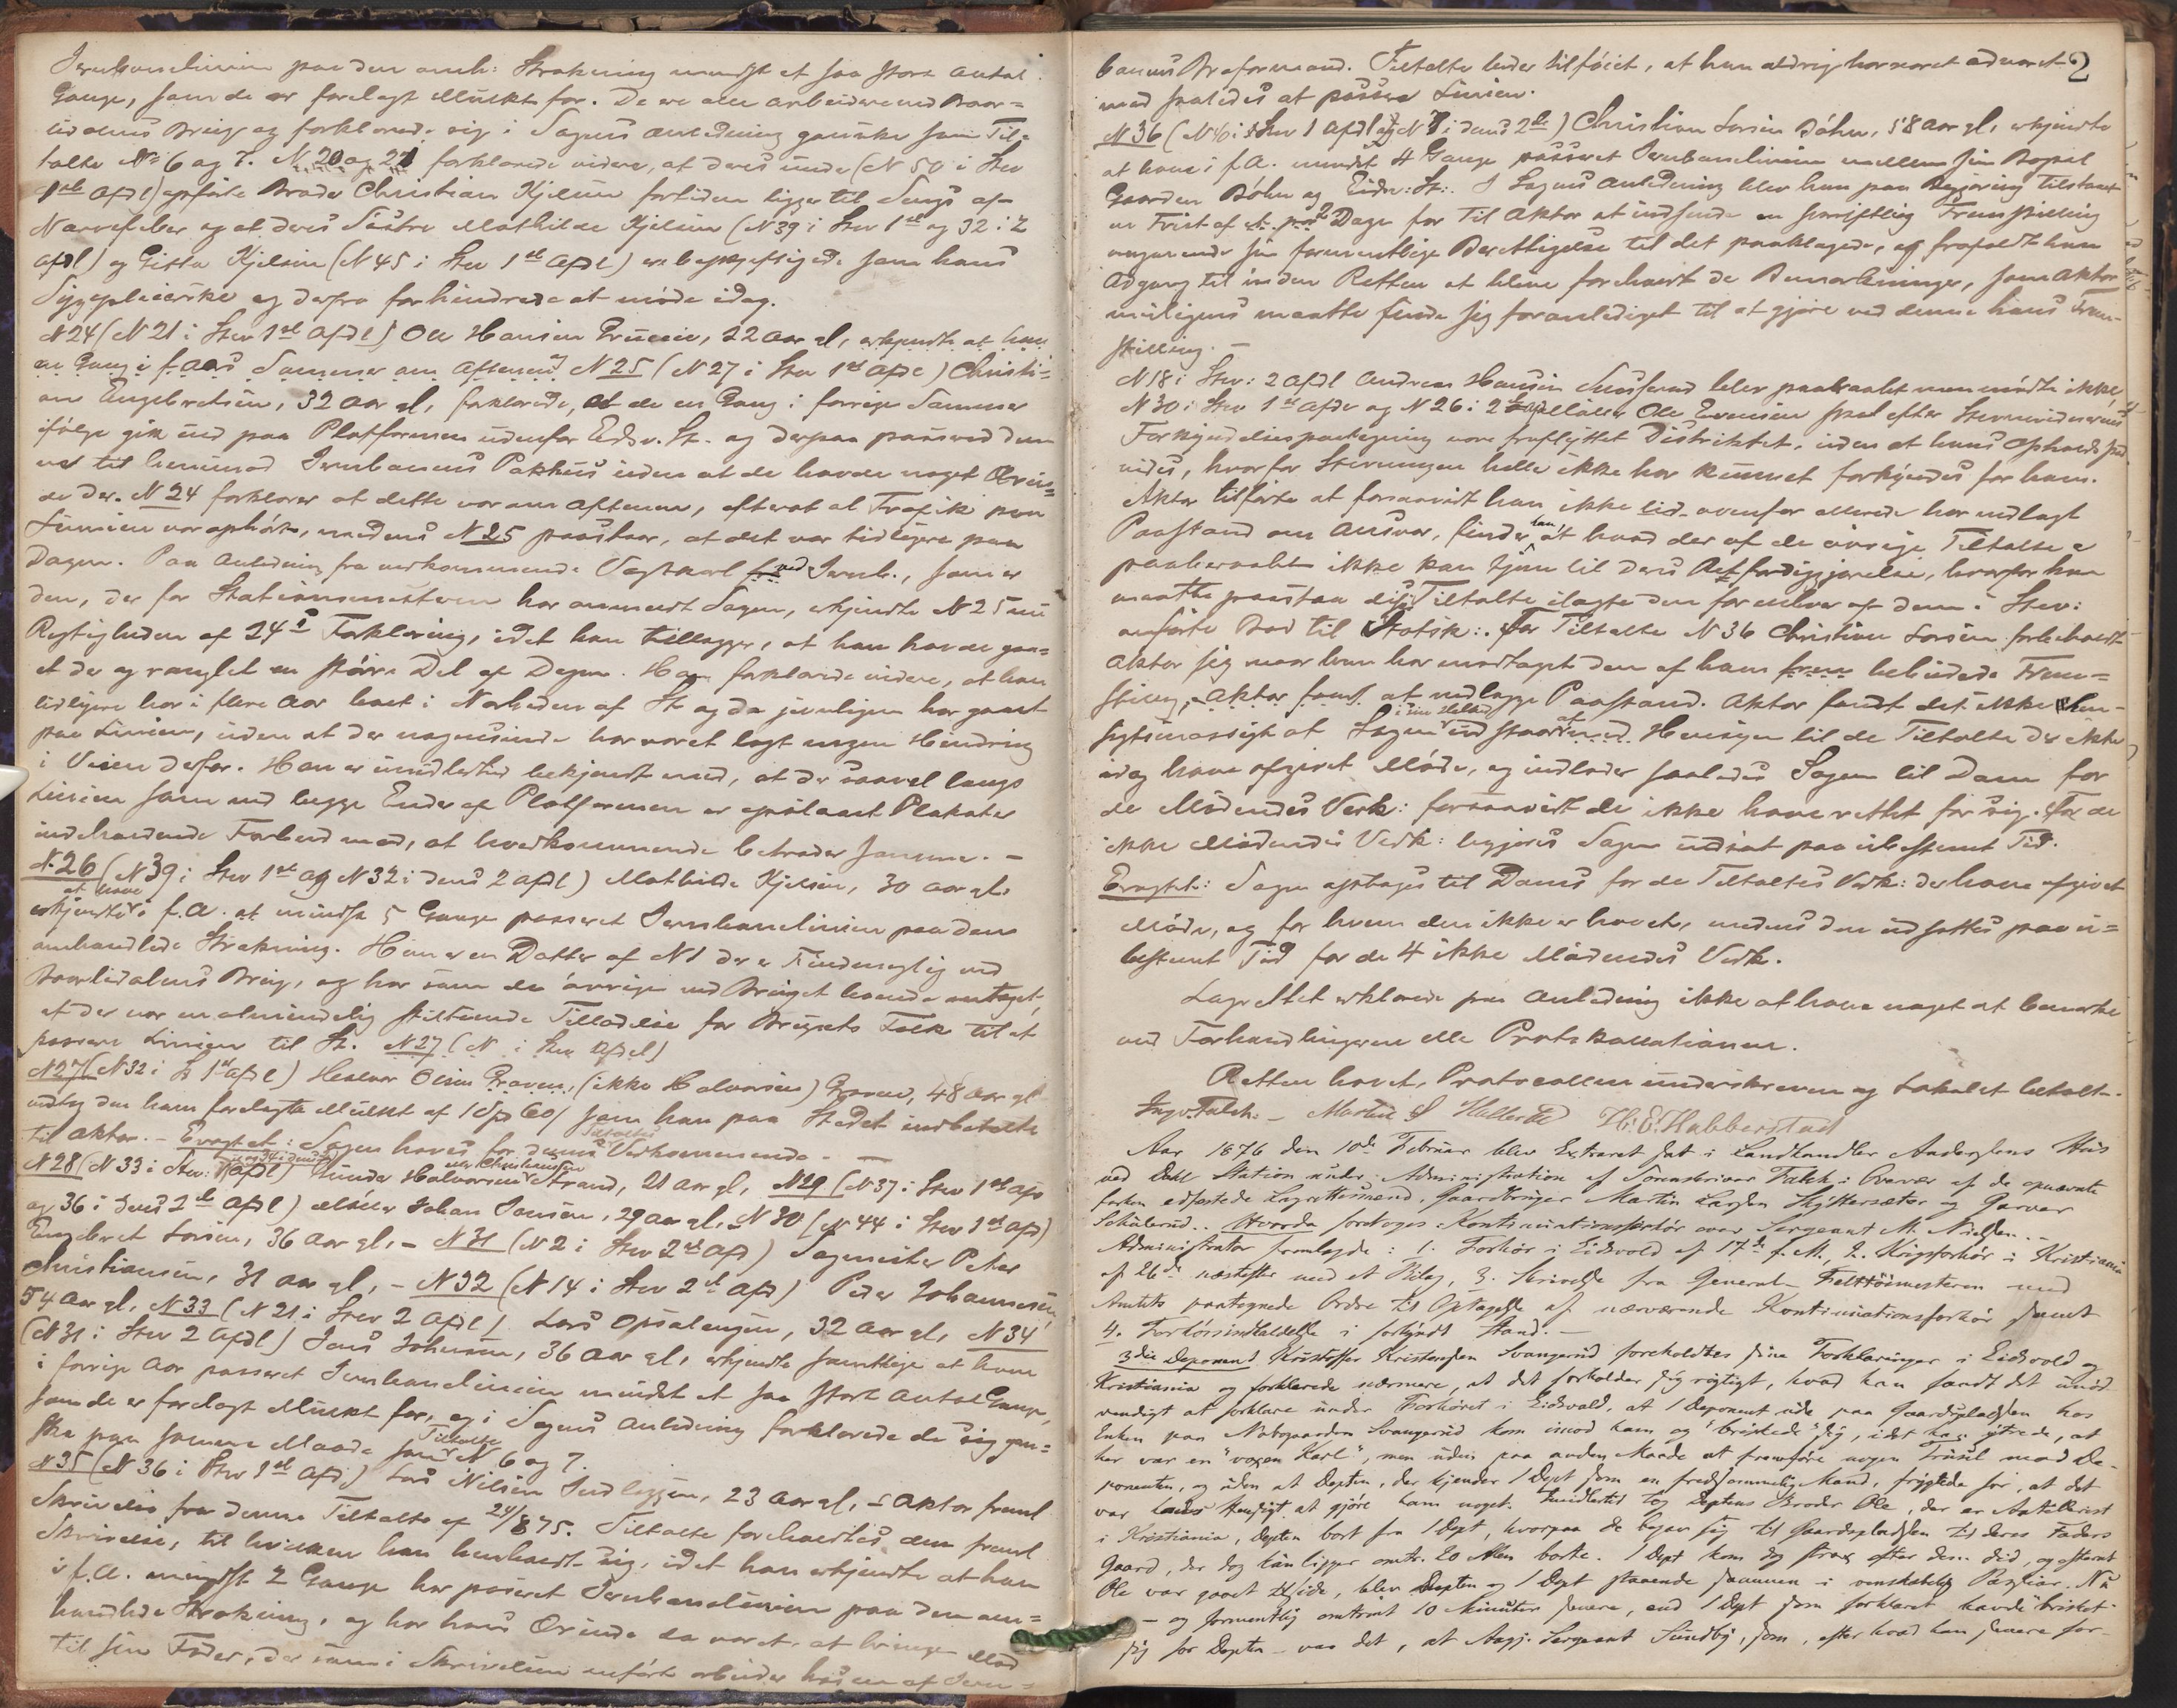 Jernbanelinien paa den omh: Strækning mindst et saa stort Antal
Gange, som de er forelagt Mulkt for. De ere alle Arbeidere ved Baar=
lidalens Brug og forklarede sig i Sagens Anledning ganske som Til=
talte No 6 og 7. N 20 og 21 forklarede videre, at deres under (N 50 i Stev
1ste Afdl) opførte Broder Christian Kjelsen fortiden ligger til Sengs af
Nervefeber og at deres Søstre Mathilde Kjelsen (N 39 i Stev 1ste og 32 i 2
Afdl) og Gitta Kjelsen (N 45 i Stev 1ste Afdl) ere beskjæftigede som hans
Sygepleierske og derfra forhindrede at møde idag.
N 24 (N 21 i Stev 1ste Afdl) Ole Hansen Gruen, 22 Aar gl, erkjendte at have
en Gang i f. Aars Sommer om Aftenen N 25 (N 27 i Stev 1ste Afdl) Christi=
an Engebretsen, 32 Aar gl, forklarede, at de en Gang i forrige Sommer
ifølge gik ind paa Platformen udenfor Eidsv. St. og derpaa passerede den
ned til henimod Jernbanens Pakhus uden at de havde noget Ærin=
de der. N 24 forklarer at dette var om Aftenen, efterat al Trafik paa
Linien var ophørt, medens N 25 paastaar, at det var tidligere paa
Dagen. Paa Anledning fra vedkommende Vagtkarl ved Jernb., som er
den, der for Stationsmesteren har anmeldt Sagen, erkjendte N 25 nu
Rigtigheden af 24s Forklaring, idet han tillægger, at han havde gaa=
et der og ranglet en større Del af Dagen. Han forklarede videre, at han
tidligere har i flere Aar boet i Nærheden af St og da jevnligen har gaaet
paa Linien, uden at der nogensinde har været lagt nogen Hindring
i Veien derfor. Han er imidlertid bekjendt med, at der saavel langs
Linien som ved begge Ender af Platformen er opslaaet Plakater
indeholdende Forbud mod, at uvedkommende betræder samme. –
N. 26 (N 39 i Stev 1ste og N 32 i dens 2 Afdl) Mathilde Kjelsen, 30 Aar gl.
erkjendte at have i f. A. at mindst 5 Gange passeret Jernbanelinien paa den
omhandlede Strækning. Hun er en Datter af N 1 der er Fuldmægtig ved
Baarlidalens Brug, og har som de øvrige ved Bruget boende antaget,
at der var en almindelig stiltiende Tilladelse for Brugets Folk til at
passere Linien til St. N 27 (N i Stev Afdl)
N 27 (N 32 i St 1ste Afdl) Halvor Olsen Graven, (ikke Halvorsen) Graven, 48 Aar gl
vedtog den ham forelagte Mulkt af 1 Sp 60 s som han paa Stedet indbetalte
til Aktor. – Eragtet: Sagen hæves for denne Tiltaltes Vedkommende. –
N 28 (N 33 i Stev: 1 Afdl og 34 i dens 2) Gunder Halvorsen eller Christiansen Strand, 21 Aar gl, N 29 (N 37 i Stev 1ste Afd
og 36 i dens 2de Afdl) Møller Johan Jansen, 29 Aar gl, N 30 (N 44 i Stev 1ste Afd)
Engebret Larsen, 36 Aar gl, – N 31 (N 2 i Stev 2de Afd) Sagmester Peter
Christiansen, 31 Aar gl, – N 32 (N 14 i Stev 2de Afd) Peder Johannesen,
54 Aar gl, N 33 (N 21 i Stev 2 Afdl) Lars Opsalengen, 32 Aar gl, N 34
(N 31 i Stev 2 Afdl) Jens Johnsen, 36 Aar gl, erkjendte samtlige at have
i forrige Aar passeret Jernbanelinien mindst et saa stort Antal Gange,
som de er forelagt Mulkt for, og i Sagens Anledning forklarede de sig gan=
ske paa samme Maade som Tiltalte N 6 og 7.
N 35 (N 36 i Stev 1ste Afd) Lars Nilsen Indlyggen, 23 Aar gl, – Aktor freml
Skrivelse fra denne Tiltalte af 24/8 75. Tiltalte foreholdtes den freml
Skrivelse, til hvilken han henholdt sig, idet han erkjendte at han
i f. A. mindst 2 Gange har passeret Jernbanelinien paa den om=
handlede Strækning, og har hans Ærinde da været at bringe Mad
til sin Fader, der som i Skrivelsen anført arbeider hos en af Jern=
2
banens Baformænd. Tiltalte lader tilføiet, at han aldrig har været advaret
mod saaledes at passere Linien.
N 36 (N 40 i Stev 1 Afdl og N 7 i dens 2de) Christian Larsen Bøhn, 58 Aar gl, erkjendte
at have i f. A. mindst 4 Gange passeret Jernbanelinien mellem sin Bopæl
Gaarden Bøhn og Eidsv: St:. I Sagens Anledning blev han paa Begjæring tilstaaet
en Frist af 2 Dage for til Aktor at indsende en skriftlig Fremstilling
angaaende sin formentlige Berettigelse til det paaklagede, og frafaldt han
Adgang til inden Retten at blive foreholdt de Bemærkninger, som Aktor
muligens maatte finde sig foranlediget til at gjøre ved denne hans Frem-
stilling. –
N 18 i Stev: 2 Afdl Andreas Hansen blev paaraabt men mødte ikke,
N 30 i Stev 1ste Afdl og N 26 i 2 Møller Ole Evensen skal efter Stevnevidnernes
Forkyndelsespaategning være fraflyttet Distriktet, uden at hans Ophold
vides, hvorfor Stevningen heller ikke har kunnet forkyndes for ham.
Aktor tilførte at forsaavidt han ikke ovenfor allerede har nedlagt
Paastand om Ansvar, finder han, at hvad der af de øvrige Tiltalte er
paaberaabt ikke kan tjene til deres Retfærdiggjørelse, hvorfor han
maatte paastaa disse Tiltalte ilagte den for enhver af dem i Stev:
anførte Bod til Statsk:. For Tiltalte N 36 Christian Larsen forbeholdt
Aktor sig naar han har modtaget den af ham bebudede Frem=
stilling, at nedlægge Paastand. Aktor fandt det ikke hen-
sigtsmæssigt at Sagen i sin Helhed udstaar med Hensyn til de Tiltalte der ikke
idag have afgivet Møde, og indlader saaledes Sagen til Dom for
de Mødendes Vedk: forsaavidt de ikke have rettet for sig. For de
ikke Mødendes Vedk: begjæres Sagen udsat paa ubestemt Tid.
Eragtet: Sagen optages til Doms for de Tiltaltes Vedk: der have afgivet
Møde, og for hvem den ikke er hævet, medens den udsættes paa u=
bestemt Tid for de 4 ikke Mødendes Vedk.
Lagrettet erklærede paa Anledning ikke at have noget at bemærke
ved Forhandlingerne eller Protokollationen.
Retten hævet, Protocollen underskreven og Lokalet betalt.
Ingv. Falch. – Martin L Hellerud H. E. Habberstad
Aar 1876 den 10de Februar blev Extraret sat i Landhandler Andersens Hus
ved Dahl Station under Administration af Sorenskriver Falch i Overvær af de opnævnte
forhen edfæstede Lagrettesmænd, Gaardbruger Martin Larsen Skyttersæter og Garver
Schulerud. – Hvorda foretoges: Kontinuationsforhør over Sergeant M. Nielsen. –
Administrator fremlagde: 1. Forhør i Eidsvold af 17de f. M., 2. Krigsforhør i Kristiania
af 26de næstefter med et Bilag, 3. Skrivelse fra General-Felttøimesteren med
Amtets paategnede Ordre til Optagelse af nærværende Kontinuationsforhør samt
4. Forhørsindkaldelse i forkyndt Stand. –
3die Deponent Kristoffer Kristensen Svangerud foreholdtes sine Forklaringer i Eidsvold og
Kristiania og forklarede nærmere, at det forholder sig rigtigt, hvad han fandt det unød-
vendigt at forklare under Forhøret i Eidsvold, at 1 Deponent ude paa Gaardspladsen hos
Enken paa Nabogaarden Svangerud kom imod ham og "briskede" sig, idet han ytrede, at
her var en "voxen Karl", men uden paa anden Maade at fremføre nogen Trusel mod De-
ponenten, og uden at Depten, der kjender 1 Dept som en fredsommelig Mand, frygtede for, at det
var hans Hensigt at gjøre ham noget. Imidlertid tog Deptens Broder Ole, der er Artillerist
i Kristiania, Depten bort fra 1 Dept, hvorpaa de begav sig til Gaardspladsen til deres Faders
Gaard, der dog kun ligger omtr. 20 Alen borte. 1 Dept kom dog strax efter dem did, og efterat
Ole var gaaet tilside, blev Depten og 1 Dept staaende sammen i venskabelig Passiar. Nu
– og formentlig omtrent 10 Minuter senere, end 1 Dept som forklaret havde "brisket"
sig for Depten – var det, at Angj. Sergeant Sundby, som, efter hvad han senere for-